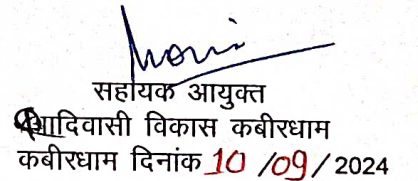 सहायक आयुक्त
आदिवासी विकास कबीरधाम
कबीरधाम दिनांक 10 /09/ 2024